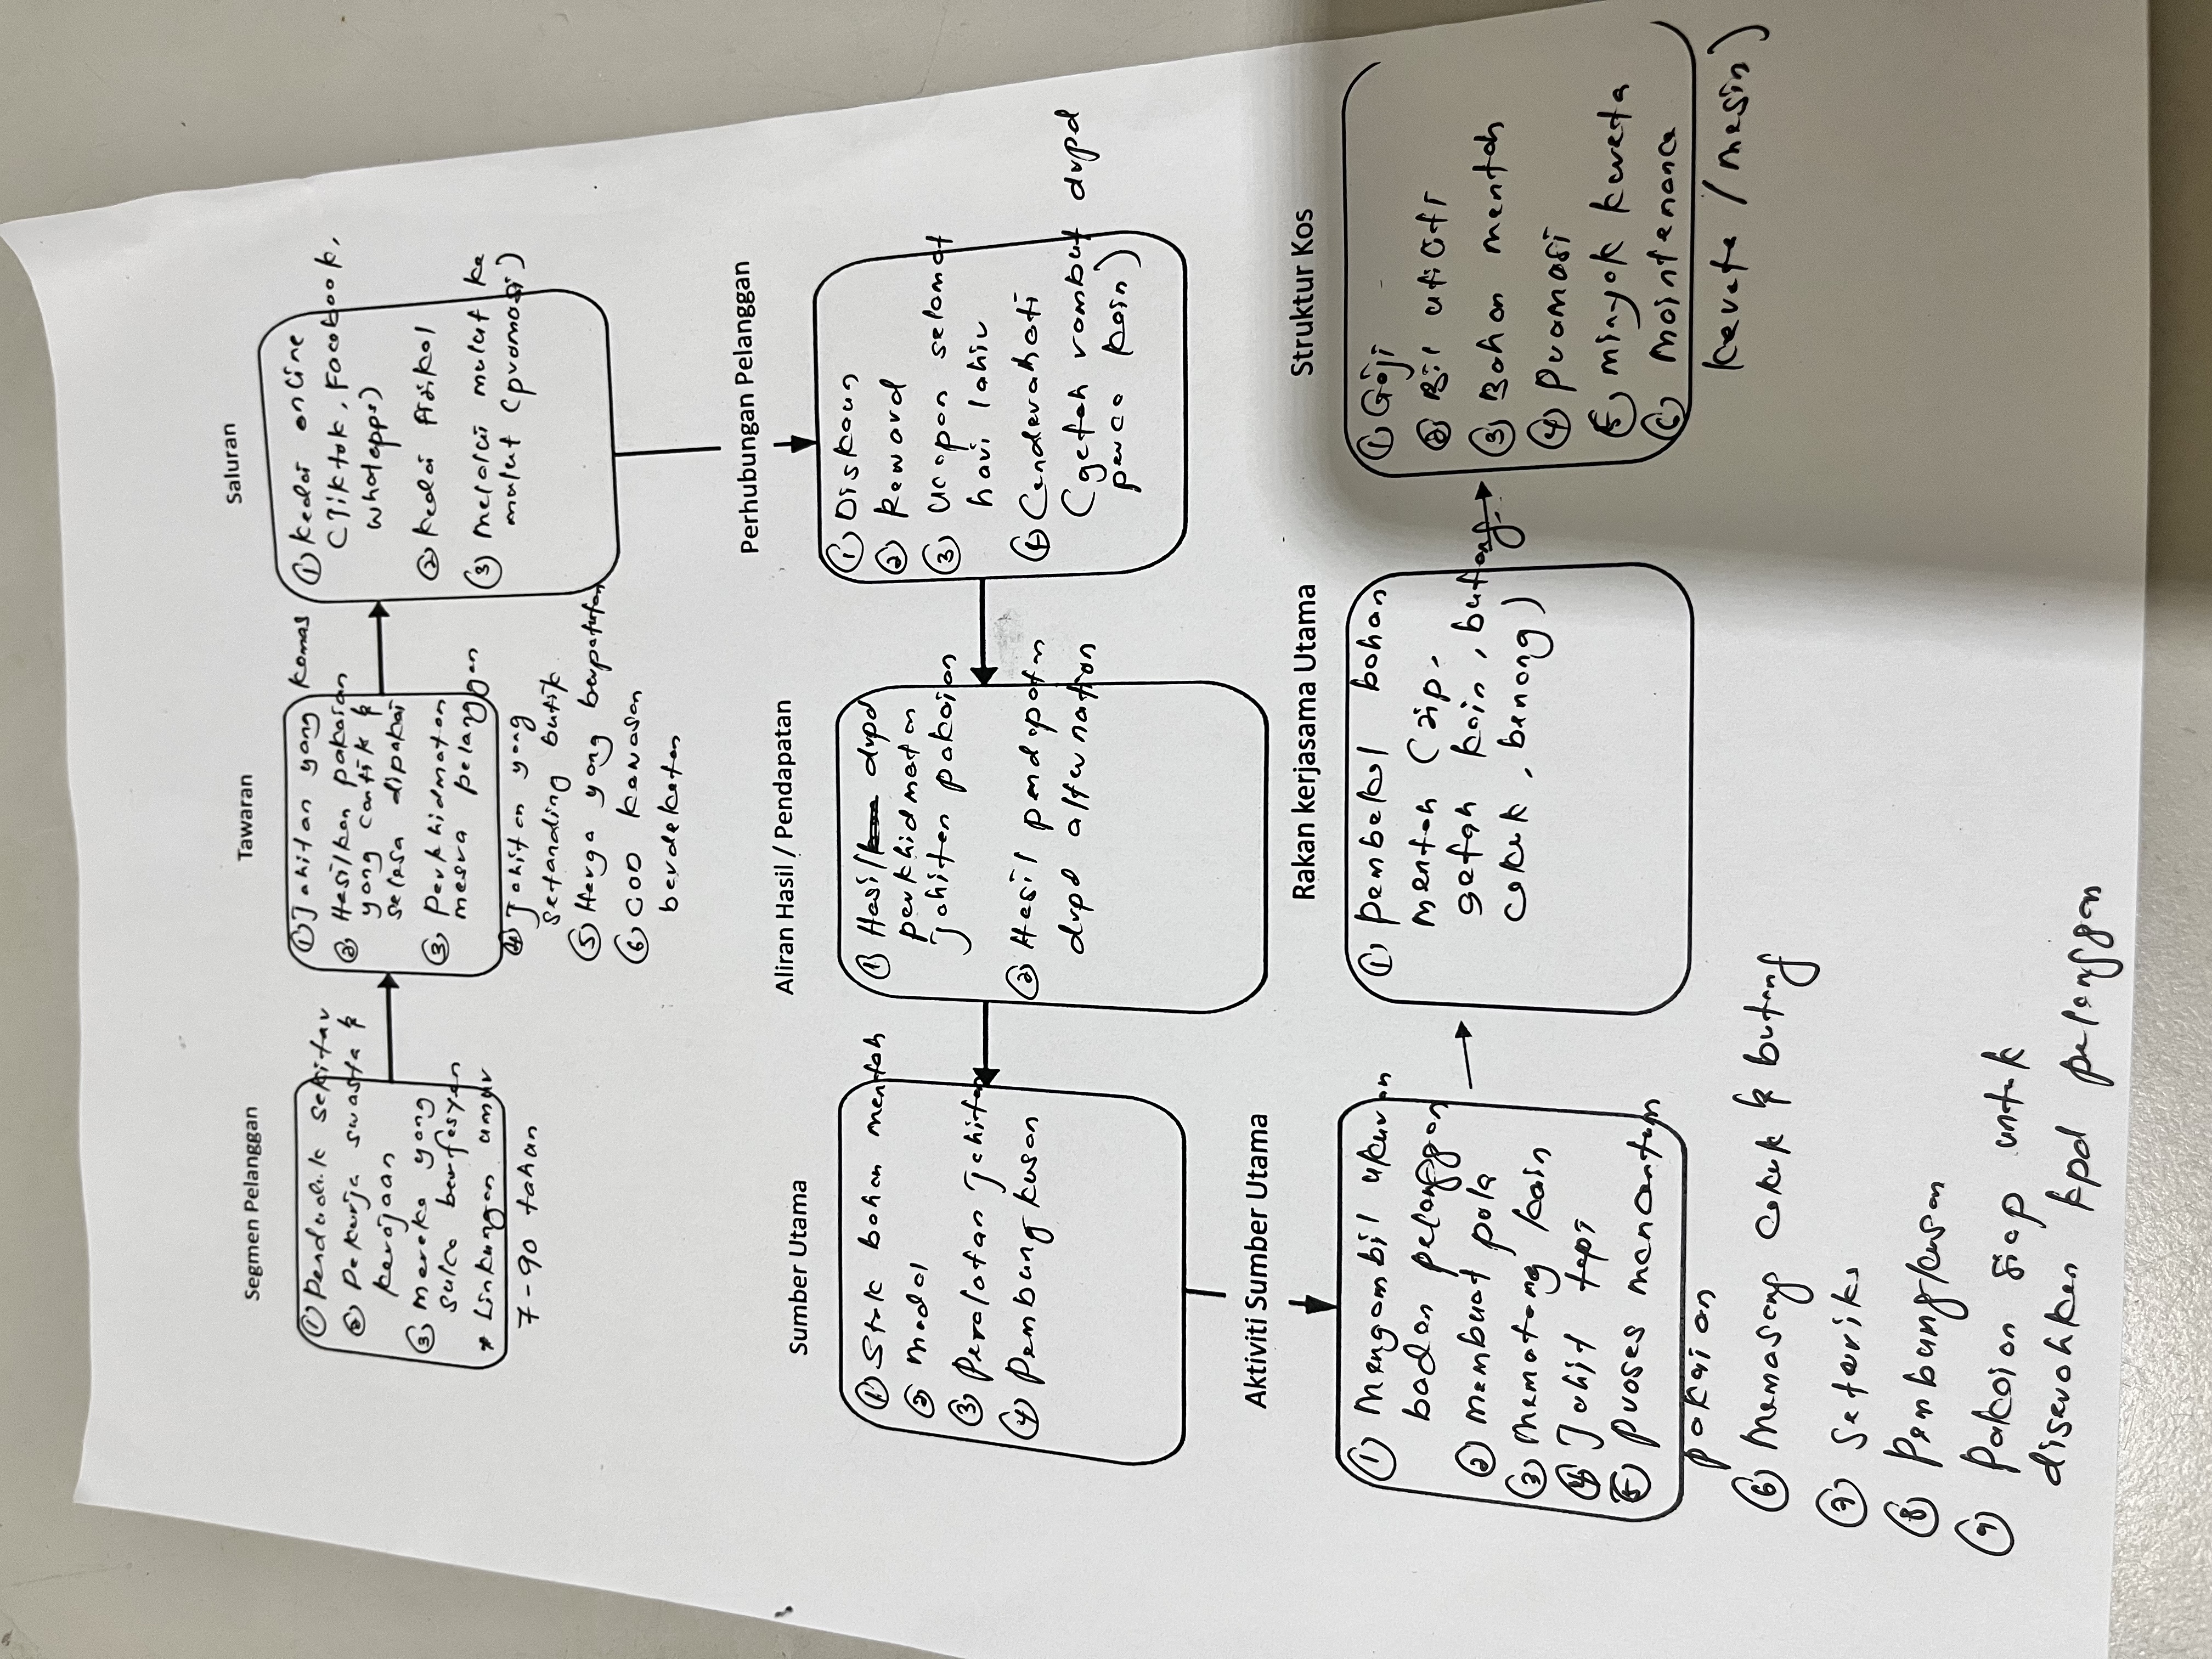 Segmen Pelanggan
① Penduduk sekitar
② Pekerja swasta &
kerajaan
③ mereka yang
suka berfesyen
* Linkungan umur
7-90 tahun
Tawaran
① Jahitan yang kemas
② Hasilkan pakaian
yang cantik &
selesa dipakai
③ Perkhidmatan
mesra pelanggan
④ Jahitan yang
setanding butik
⑤ Harga yang berpatutan
⑥ COD kawasan
berdekatan
Saluran
① Kedai online
(Tiktok, Facebook,
Whatapps)
② Kedai fizikal
③ Melalui mulut ke
mulut (promosi)
Perhubungan Pelanggan
① Diskaun
② Reward
③ Ucapan selamat
hari lahir
④ Cenderahati
(getah rambut drpd
perca kain)
Aliran Hasil / Pendapatan
① Hasil drpd
perkhidmatan
jahitan pakaian
② Hasil pendapatan
drpd alternation
Sumber Utama
① Stok bahan mentah
② modal
③ Peralatan jahitan
④ Pembungkusan
Aktiviti Sumber Utama
① Mengambil ukuran
badan pelanggan
② membuat pola
③ memotong kain
④ Jahit tepi
⑤ Proses mencantum
pakaian
⑥ Memasang cakuk & butang
⑦ Seterika
⑧ Pembungkusan
⑨ Pakaian siap untuk
diserahkan kpd pelanggan
Rakan kerjasama Utama
① Pembekal bahan
mentah (zip,
getah kain, butang,
cakuk, benang)
Struktur Kos
① Gaji
② Bil utiliti
③ Bahan mentah
④ Promosi
⑤ minyak kereta
⑥ maintenance
(kereta / mesin)